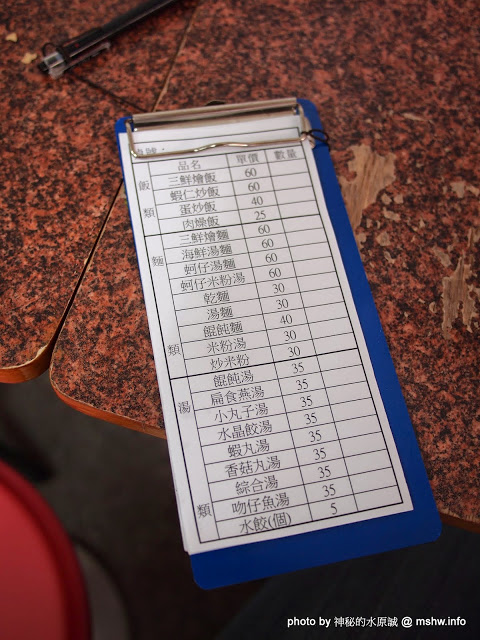 號：
品名 單價 數量
飯類
三鮮燴飯 60
蝦仁炒飯 60
蛋炒飯 40
肉燥飯 25
麵類
三鮮燴麵 60
海鮮湯麵 60
蚵仔湯麵 60
蚵仔米粉湯 60
乾麵 30
湯麵 30
餛飩麵 40
米粉湯 30
炒米粉 30
湯類
餛飩湯 35
扁食燕湯 35
小丸子湯 35
水晶餃湯 35
蝦丸湯 35
香菇丸湯 35
綜合湯 35
吻仔魚湯 35
水餃(個) 5
photo by 神秘的水原誠 @ mshw.info